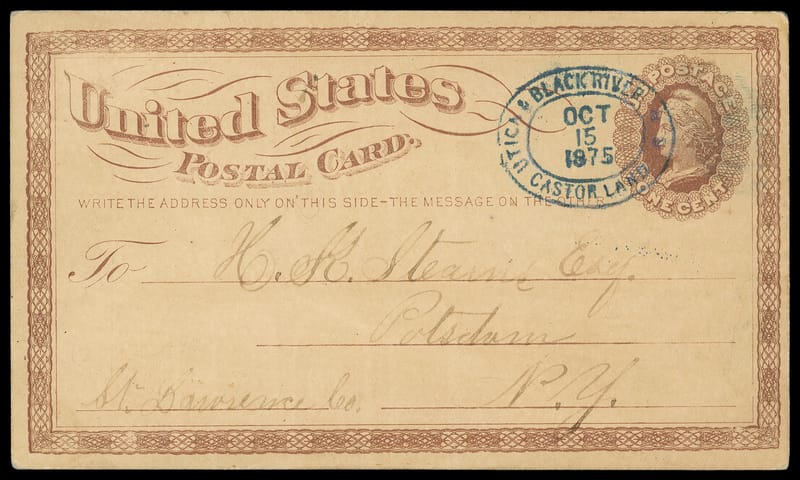 United States
POSTAL CARD.
WRITE THE ADDRESS ONLY ON THIS SIDE-THE MESSAGE ON THE OTHER
UTICA & BLACK RIVER R R
OCT
15
1875
CASTOR LAND
POSTAGE
ONE CENT
To H. H. Stearns Esq.
Potsdam
St. Lawrence Co. N.Y.